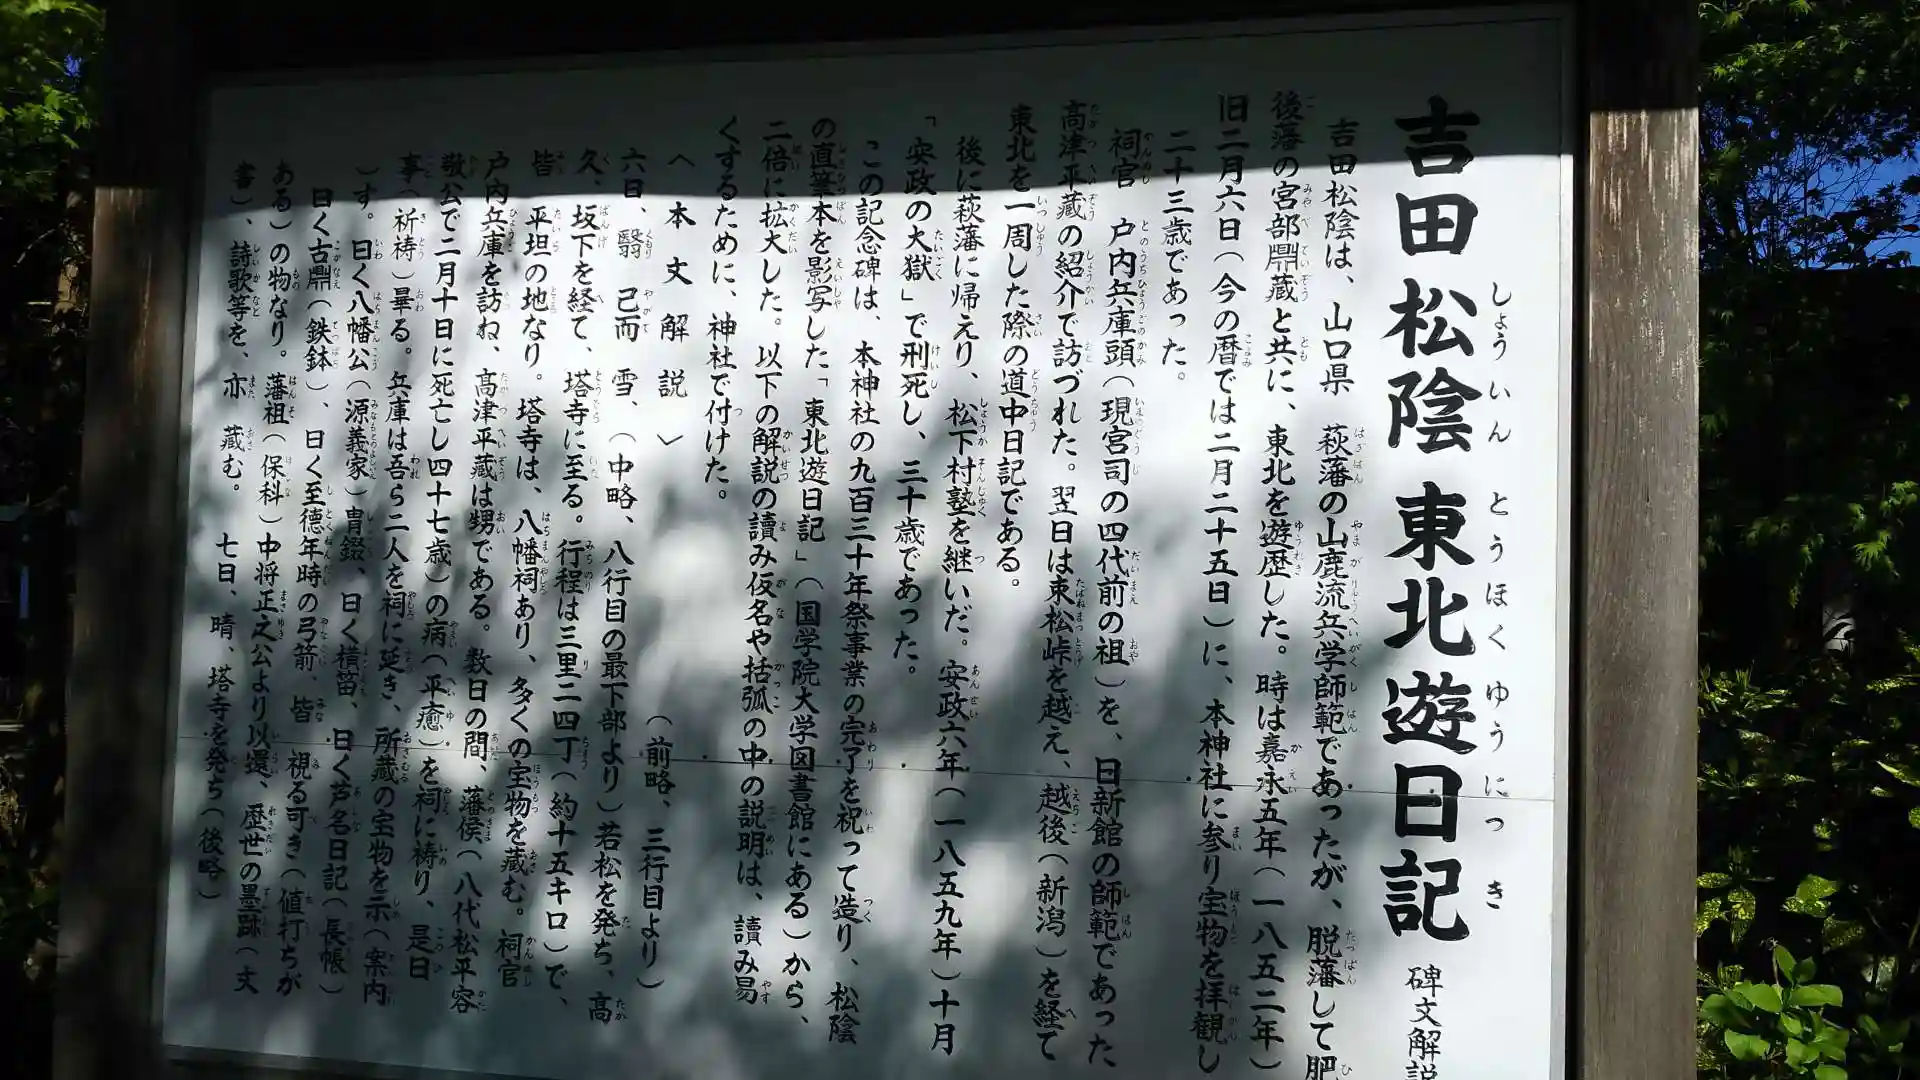 吉田松陰 東北遊日記 碑文解説
しょういん とうほくゆうにっき
吉田松陰は、山口県 萩藩の山鹿流兵学師範であったが、脱藩して肥
後藩の宮部鼎蔵と共に、東北を遊歴した。時は嘉永五年(一八五二年)
旧二月六日(今の暦では二月二十五日)に、本神社に参り宝物を拝観し
二十三歳であった。
祠官 戸内兵庫頭(現宮司の四代前の祖)を、日新館の師範であった
高津平蔵の紹介で訪づれた。翌日は束松峠を越え、越後(新潟)を経て
東北を一周した際の道中日記である。
後に萩藩に帰えり、松下村塾を継いだ。安政六年(一八五九年)十月
「安政の大獄」で刑死し、三十歳であった。
この記念碑は、本神社の九百三十年祭事業の完了を祝って造り、松陰
の直筆本を影写した「東北遊日記」(国学院大学図書館にある)から、
二倍に拡大した。以下の解説の讀み仮名や括弧の中の説明は、讀み易
くするために、神社で付けた。
〈本文解説〉 (前略、三行目より)
六日、翳 已而 雪、(中略、八行目の最下部より)若松を発ち、高
久、坂下を経て、塔寺に至る。行程は三里二四丁(約十五キロ)で、
皆 平坦の地なり。塔寺は、八幡祠あり、多くの宝物を蔵む。祠官
戸内兵庫を訪ね、高津平蔵は甥である。数日の間、藩侯(八代松平容
敬公で二月十日に死亡し四十七歳)の病(平癒)を祠に祷り、是日
事(祈祷)畢る。兵庫は吾ら二人を祠に延き、所蔵の宝物を示(案内
)す。曰く八幡公(源義家)冑錣、曰く横笛、曰く芦名日記(長帳)
曰く古鼎(鉄鉢)、曰く至德年時の弓箭、皆 視る可き(値打ちが
ある)の物なり。藩祖(保科)中将正之公より以還、歴世の墨跡(文
書)、詩歌等を、亦 蔵む。 七日、晴、塔寺を発ち(後略)